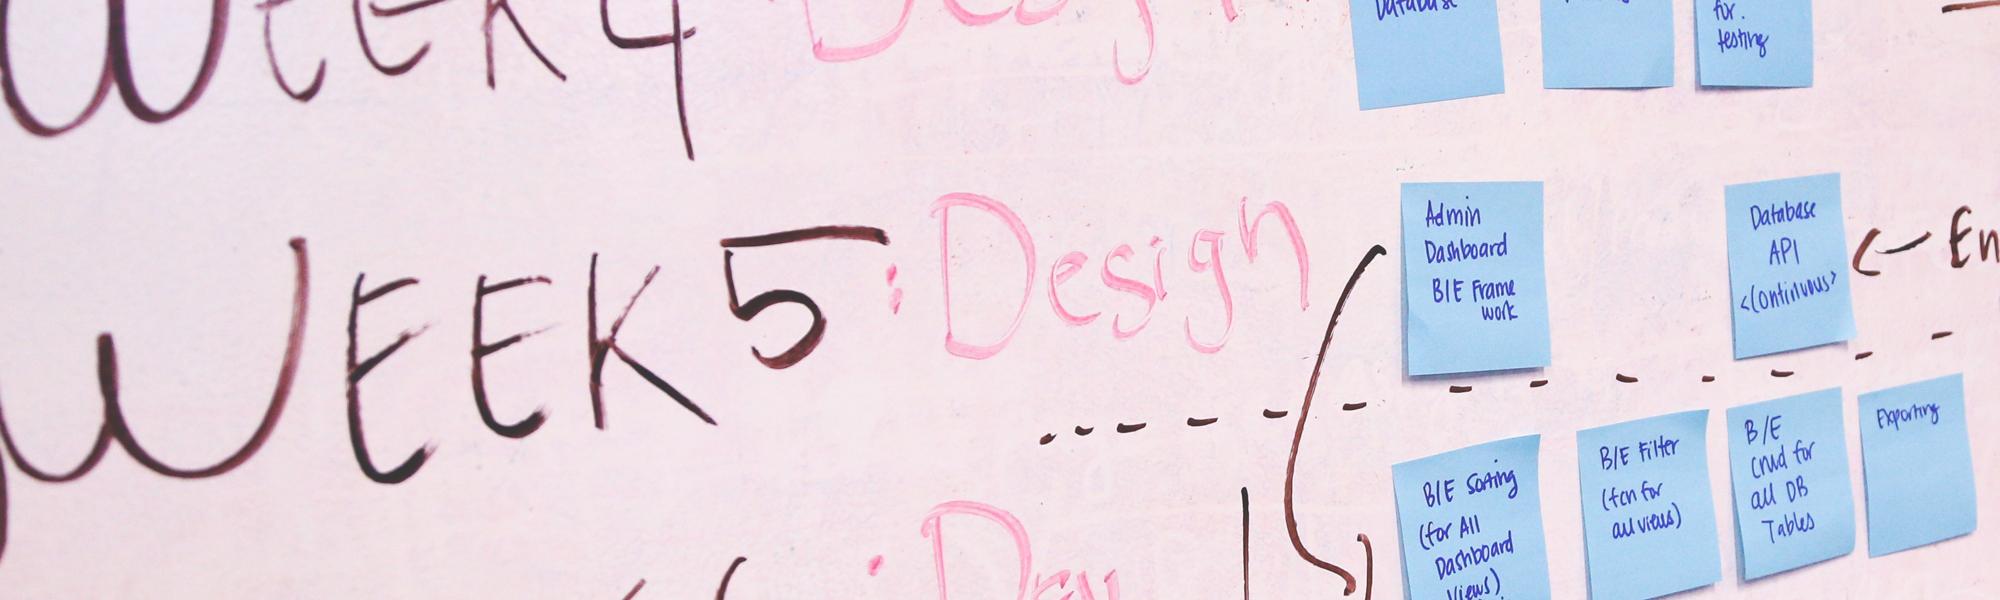 WEEK 4 Design
Database
for.
testing
WEEK 5: Design
Admin
Dashboard
B/E Frame
work
Database
API
<Continuous>
← En
B/E Sorting
(for All
Dashboard
Views)
B/E Filter
(fcn for
all views)
B/E
crud for
all DB
Tables
Exporting
: Dev